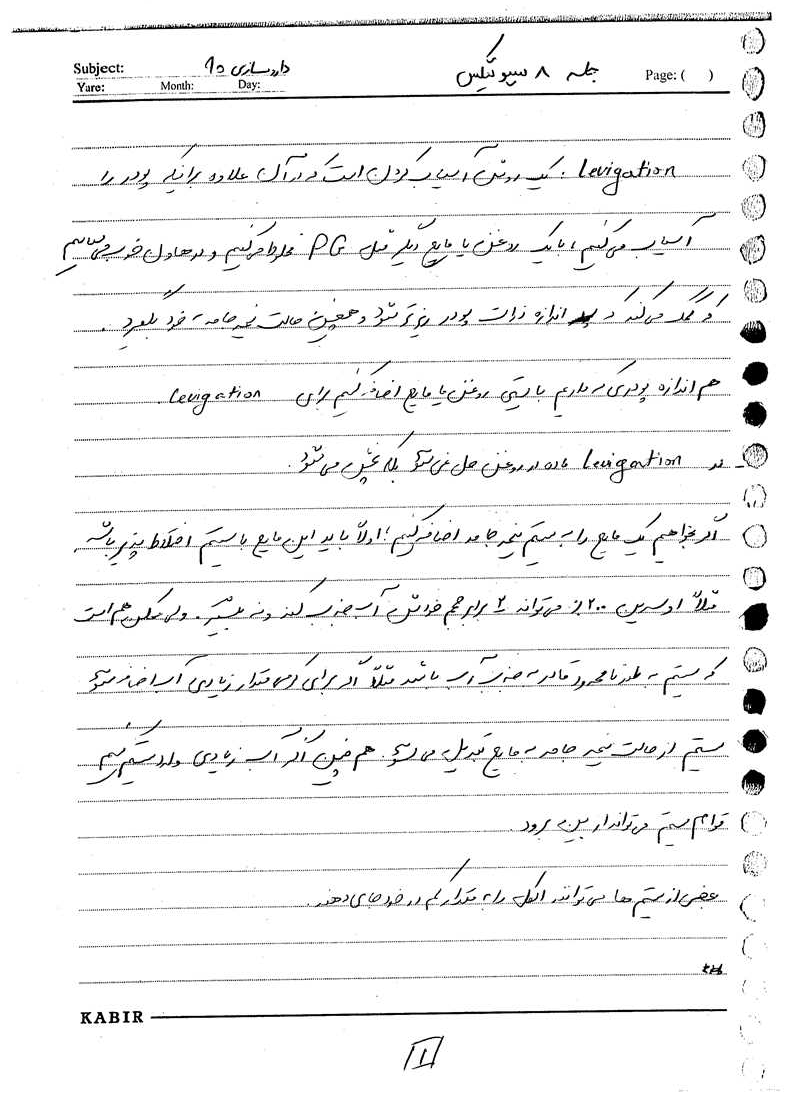 Subject: داروسازی ۵ جلسه ۸ سیوتیکس Page: ( )
Yare: Month: Day:
Levigation : یک روش آسیاب کردن است که در آن علاوه بر اینکه پودر را
آسیاب می‌کنیم، با یک روغن یا مایع دیگر مثل PG مخلوط می‌کنیم و در هاون خوب می‌ساییم
که کمک می‌کند که اندازه ذرات پودر ریزتر شود و همچنین حالت نیمه جامد به خود بگیرد.
هم اندازه پودری که داریم بایستی روغن یا مایع اضافه کنیم برای Levigation.
- در Levigation ماده در روغن حل نمی‌شود بلکه پخش می‌شود.
اگر بخواهیم یک مایع را به سیستم نیمه جامد اضافه کنیم؛ اولاً باید این مایع با سیستم اختلاط پذیر باشد
مثلاً اوسرین ۲۰۰٪ می‌تواند ۲ برابر حجم خودش آب جذب کند و نه بیشتر. ولی ممکن هم است
که سیستم به طور نامحدود قادر به جذب آب باشد مثلاً اگر برای کرم مقدار زیادی آب اضافه شود
سیستم از حالت نیمه جامد به مایع تبدیل می‌شود. هم چنین اگر آب زیادی وارد سیستم کنیم
قوام سیستم می‌تواند از بین برود.
بعضی از سیستم ها می‌توانند الکل را به مقدار کم در خود جای دهند.
KABIR
1